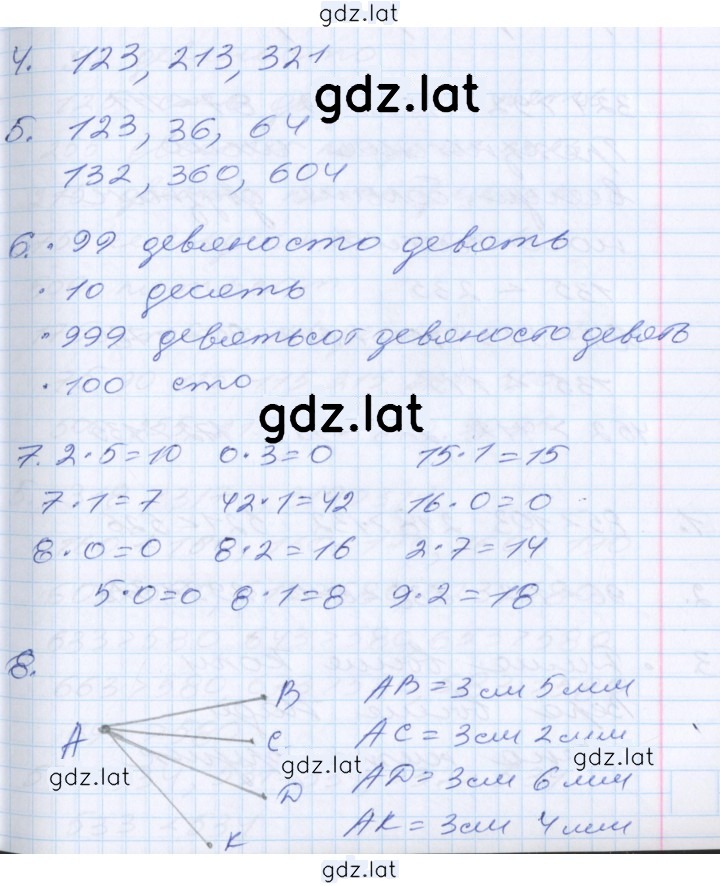 gdz.lat
4. 123, 213, 321
gdz.lat
5. 123, 36, 64
132, 360, 604
6. • 99 девяносто девять
• 10 десять
• 999 девятьсот девяносто девять
• 100 сто
gdz.lat
7. 2 · 5 = 10 0 · 3 = 0 15 · 1 = 15
7 · 1 = 7 42 · 1 = 42 16 · 0 = 0
8 · 0 = 0 8 · 2 = 16 2 · 7 = 14
5 · 0 = 0 8 · 1 = 8 9 · 2 = 18
8.
B AB = 3 см 5 мм
A C AC = 3 см 2 мм
gdz.lat gdz.lat gdz.lat
D AD = 3 см 6 мм
K AK = 3 см 4 мм
gdz.lat